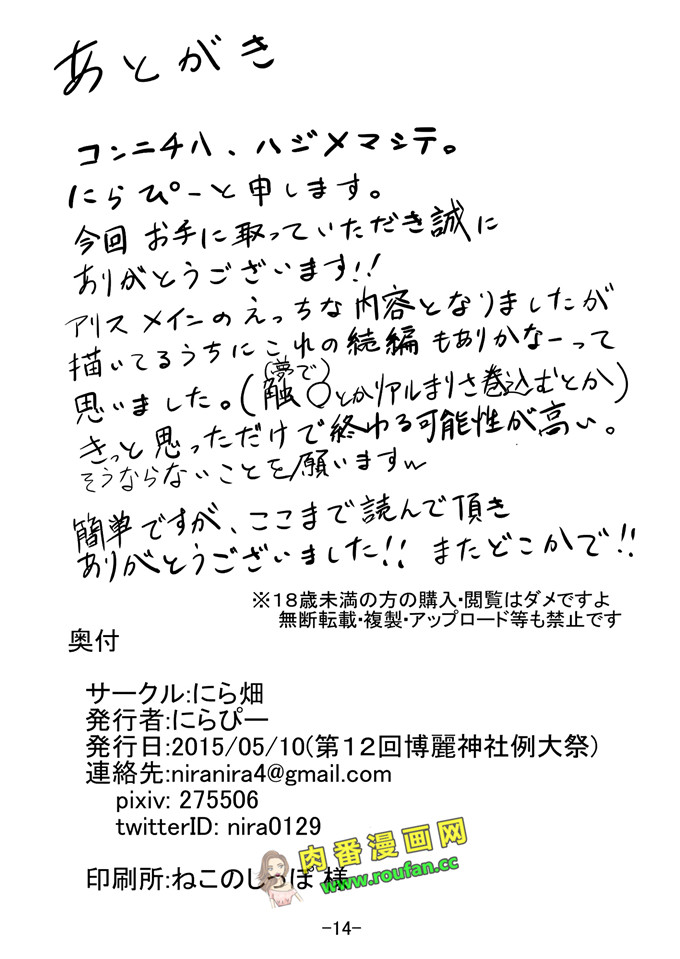 あとがき
コンニチハ、ハジメマシテ。
にらぴーと申します。
今回 お手に取っていただき誠に
ありがとうございます!!
アリスメインのえっちな内容となりましたが
描いてるうちにこれの続編もありかなーって
(夢で)
思いました。(触○とかリアルまりさ巻込むとか)
きっと思っただけで終わる可能性が高い。
そうならないことを願いますw
簡単ですが、ここまで読んで頂き
ありがとうございました!! またどこかで!!
※18歳未満の方の購入・閲覧はダメですよ
無断転載・複製・アップロード等も禁止です
奥付
サークル:にら畑
発行者:にらぴー
発行日:2015/05/10(第12回博麗神社例大祭)
連絡先:niranira4@gmail.com
pixiv: 275506
twitterID: nira0129
肉番漫画网
www.roufan.cc
印刷所:ねこのしっぽ 様
-14-